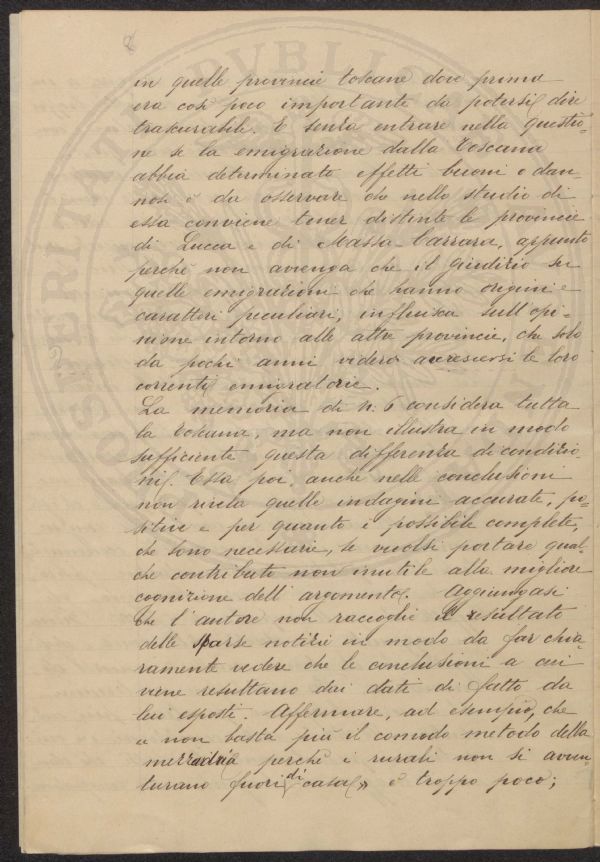 8
in quelle provincie toscane dove prima
era così poco importante da potersi dire
trascurabile. E senza entrare nella questio=
ne se la emigrazione dalla Toscana
abbia determinato effetti buoni o dan-
nosi è da osservare che nello studio di
essa conviene tener distinte le provincie
di Lucca e di Massa-Carrara, appunto
perchè non avvenga che il giudizio su
quelle emigrazioni che hanno origini e
caratteri peculiari, influisca sull'opi-
nione intorno alle altre provincie, che solo
da pochi anni videro accrescersi le loro
correnti emigratorie.
La memoria di n. 6 considera tutta
la Toscana, ma non illustra in modo
sufficiente questa differenza di condizio-
ni. Essa poi, anche nelle conclusioni
non rivela quelle indagini accurate, po=
sitive e per quanto è possibile complete,
che sono necessarie, se vuolsi portare qual-
che contributo non inutile alla migliore
cognizione dell'argomento. Aggiungasi
che l'autore non raccoglie il resultato
delle sparse notizie in modo da far chia=
ramente vedere che le conclusioni a cui
viene resultano dai dati di fatto da
lui esposti. Affermare, ad esempio, che
a non basta più il comodo metodo della
mezzadria perchè i rurali non si avven
turano fuori di casa » è troppo poco;